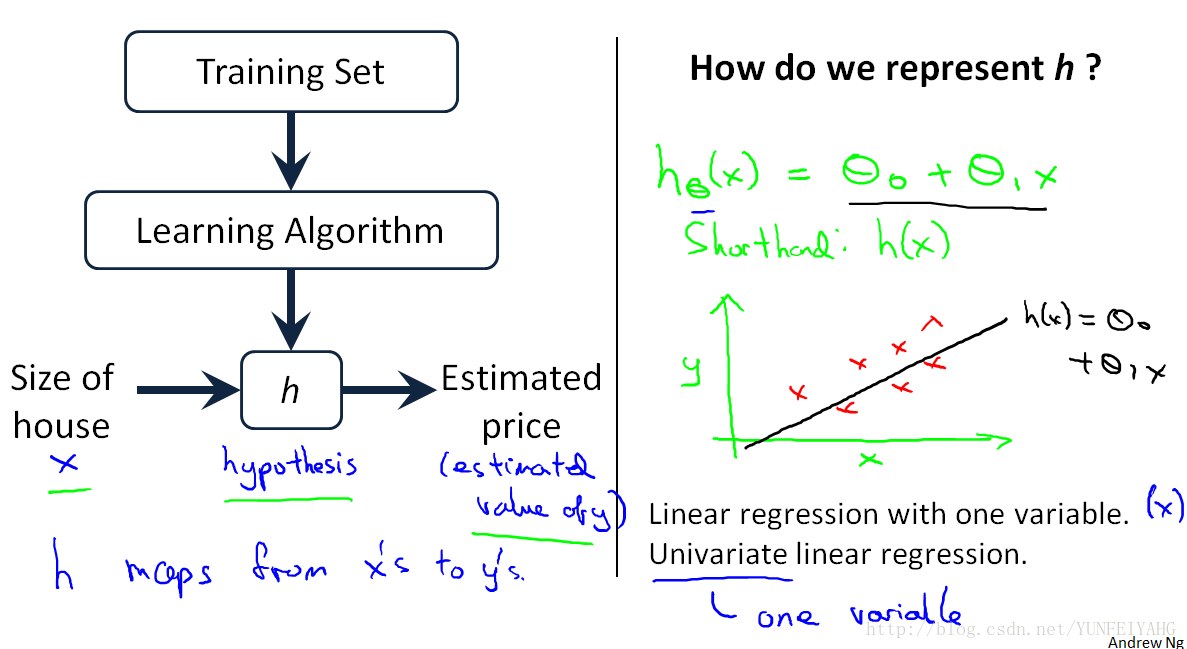 Training Set
Learning Algorithm
Size of
house
h
Estimated
price
x
hypothesis
(estimated
value of y)
h maps from x's to y's.
How do we represent h ?
hθ(x) = θ₀ + θ₁x
Shorthand: h(x)
y
x
h(x) = θ₀
+ θ₁x
Linear regression with one variable. (x)
Univariate linear regression.
one variable
http://blog.csdn.net/YUNFEIYAHG
Andrew Ng